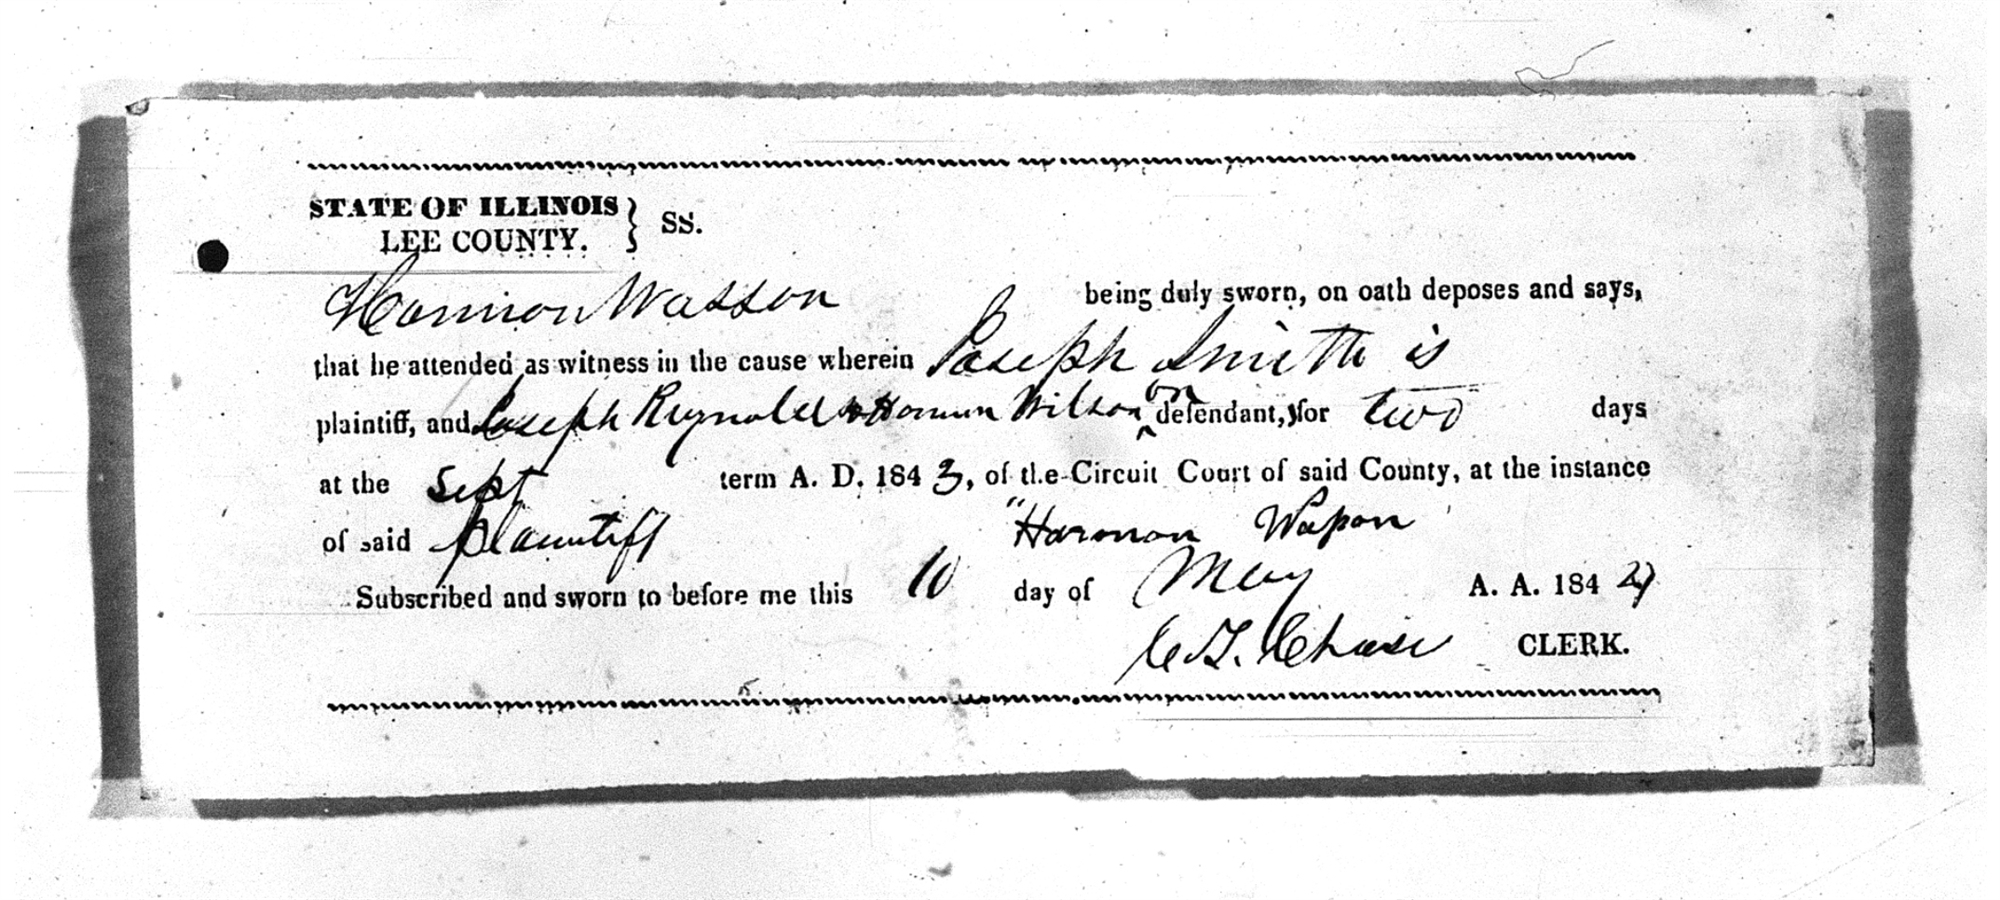 STATE OF ILLINOIS } SS.
LEE COUNTY.
Harmon Wasson being duly sworn, on oath deposes and says,
that he attended as witness in the cause wherein Joseph Smith is
plaintiff, and Joseph Reynolds & Harmon Wilson defendant, for two days
at the Sept term A. D. 1843, of the Circuit Court of said County, at the instance
of said plaintiff "Harmon Wasson"
Subscribed and sworn to before me this 10 day of May A. A. 184
Chase CLERK.